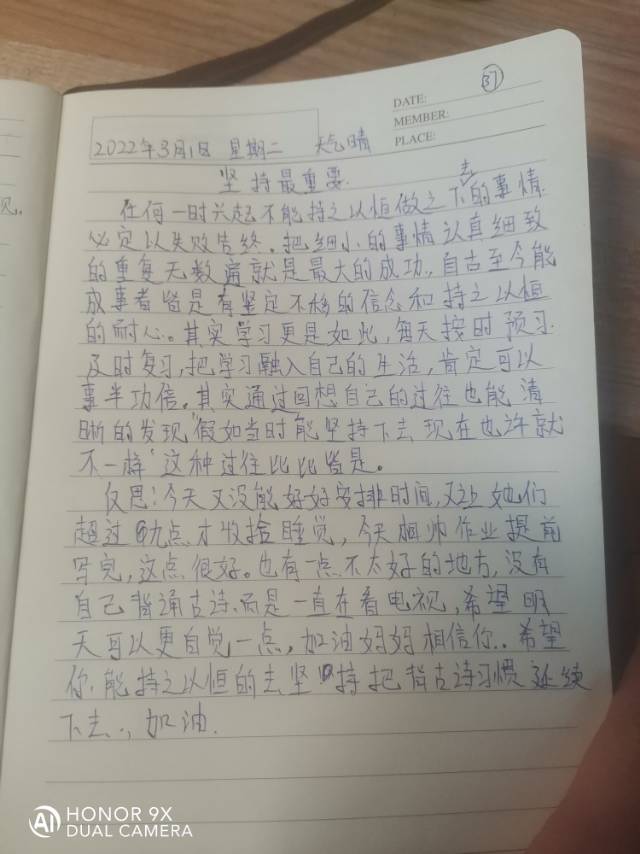 见。
37
DATE:
MEMBER:
PLACE:
2022年3月1日 星期二 天气晴
坚持最重要.
任何一时兴起不能持之以恒做之下去的事情
必定以失败告终。把细小的事情认真细致
的重复无数遍就是最大的成功。自古至今能
成事者皆是有坚定不移的信念和持之以恒
的耐心。其实学习更是如此,每天按时预习.
及时复习,把学习融入自己的生活,肯定可以
事半功倍。其实通过回想自己的过往也能清
晰的发现"假如当时能坚持下去现在也许就
不一样"这种过往比比皆是。
反思:今天又没能好好安排时间,又让她们
超过九点才收拾睡觉,今天作业提前
写完,这点很好。也有一点不太好的地方,没有
自己背诵古诗.而是一直在看电视,希望明
天可以更自觉一点,加油妈妈相信你..希望
你.能持之以恒的去坚持把背古诗习惯延续
下去.,加油.
HONOR 9X
AI DUAL CAMERA